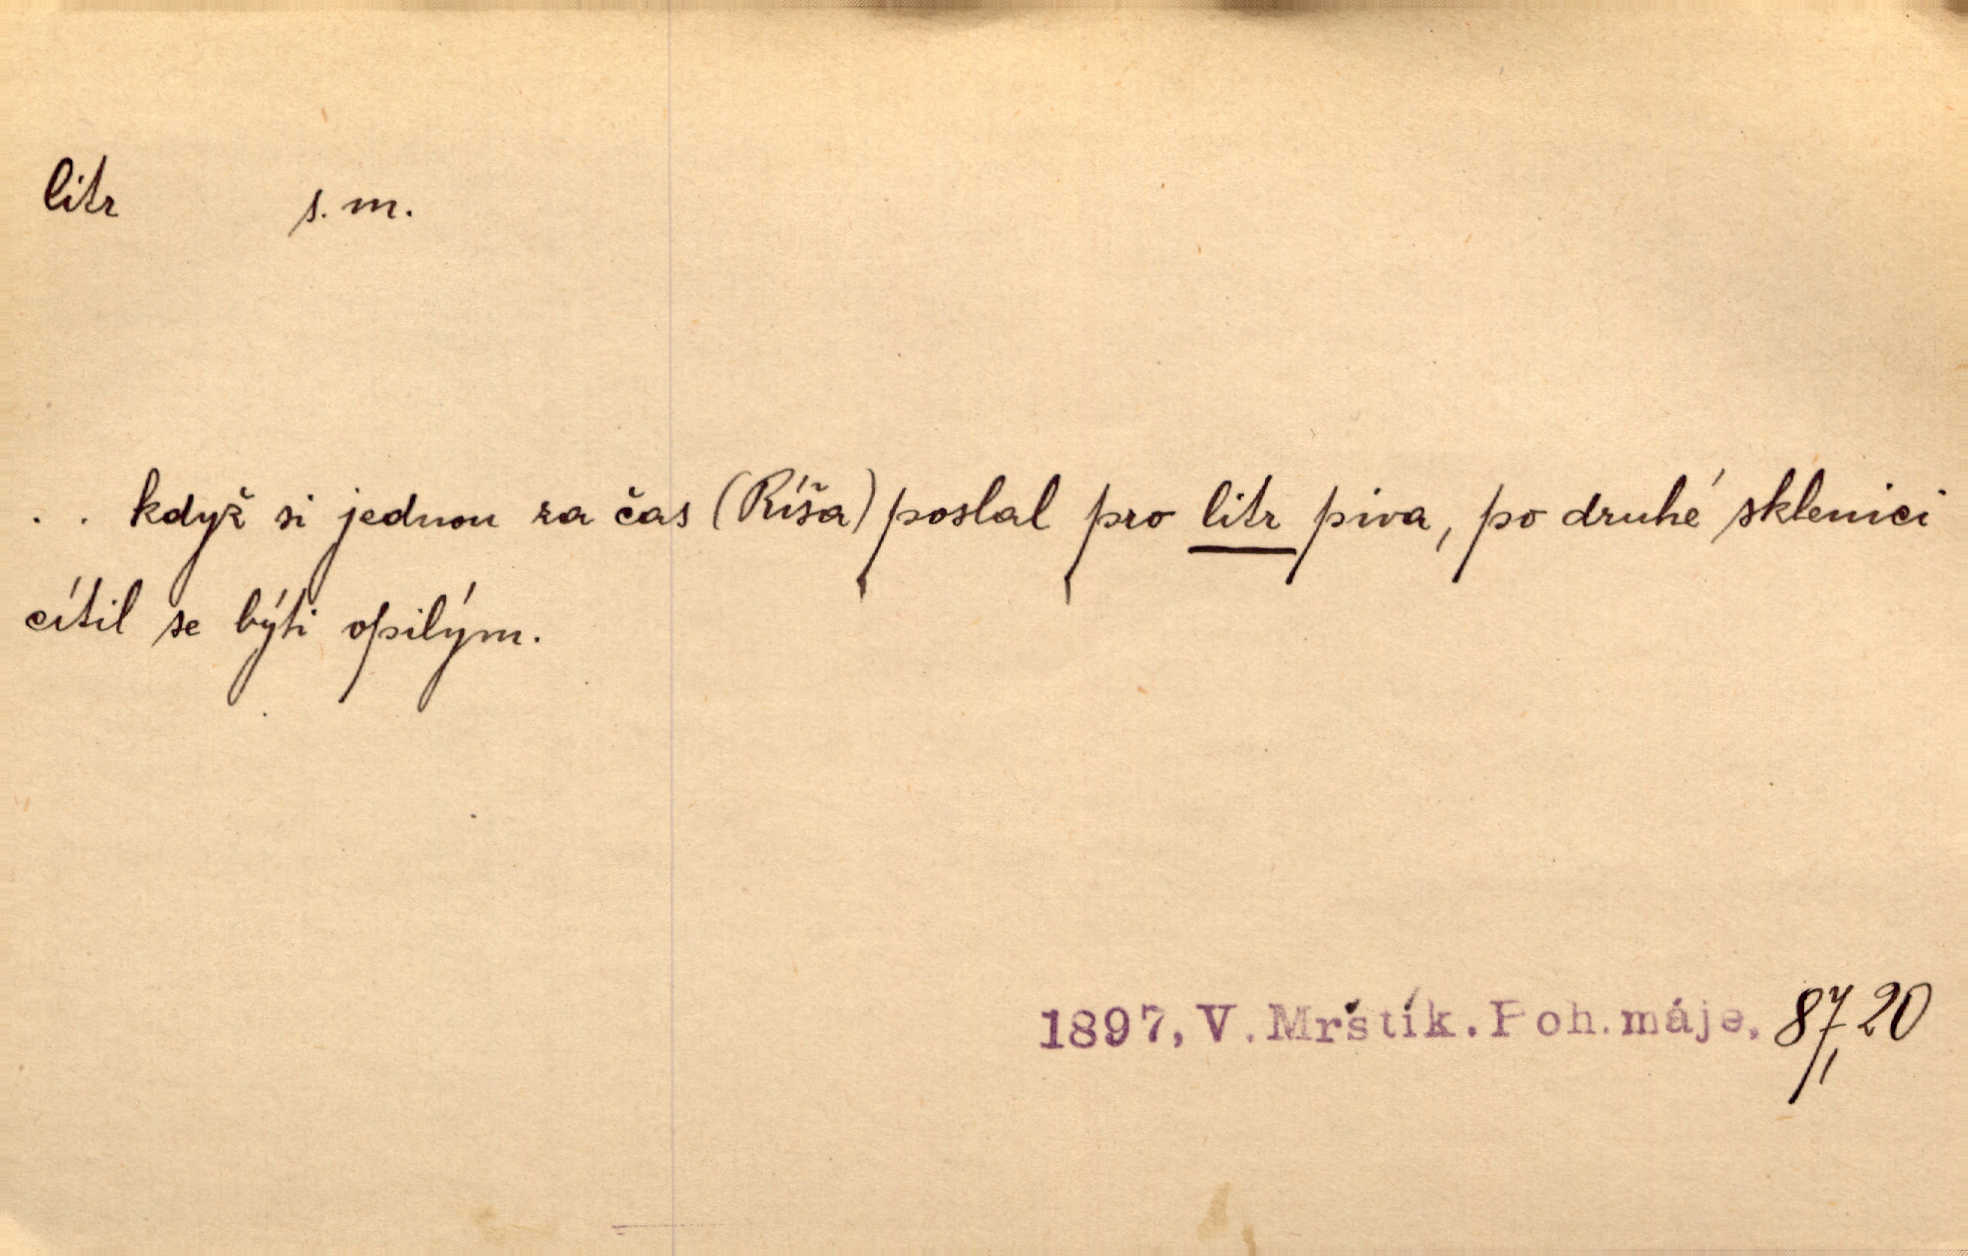 litr s. m.
. . když si jednou za čas (Ríša) poslal pro litr piva, po druhé sklenici
cítil se býti opilým.
1897, V. Mrštík. Poh. máje, 87, 20